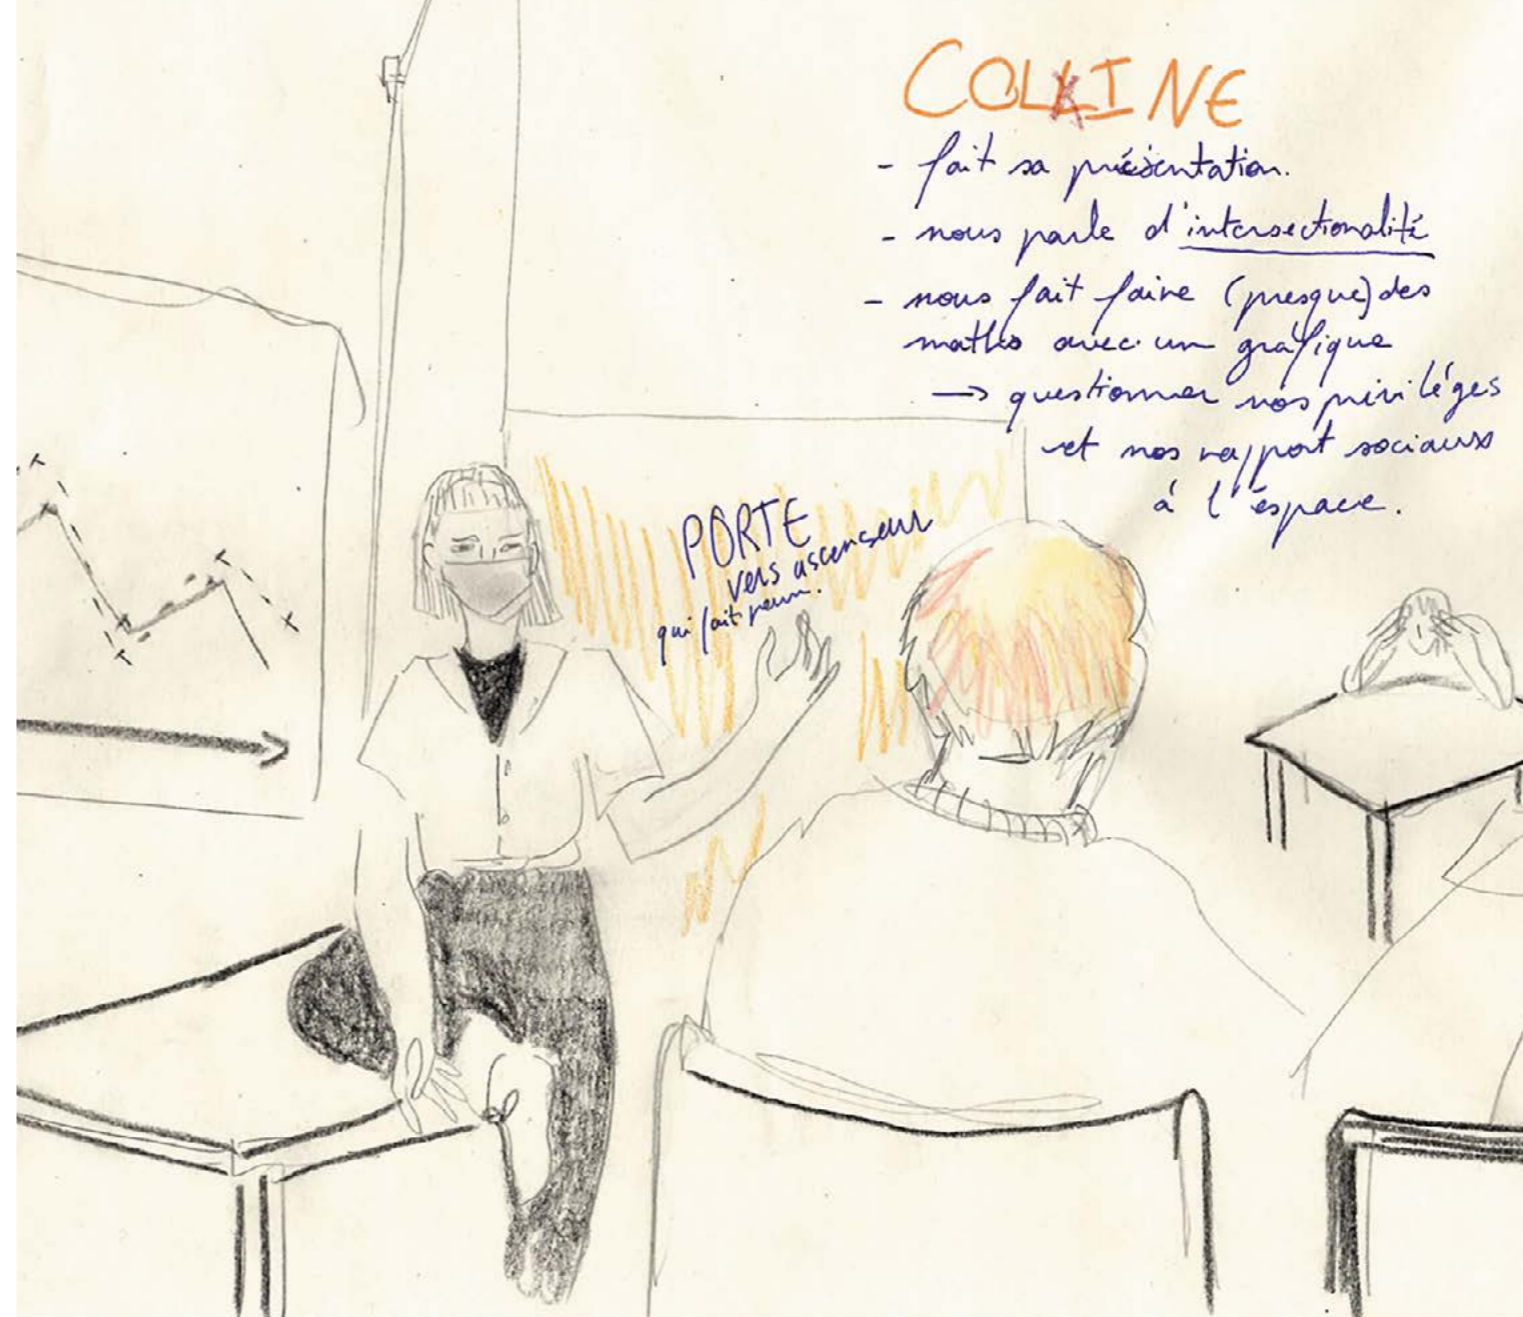 COLINE
- fait sa présentation.
- nous parle d'intersectionalité
- nous fait faire (presque) des
maths avec un grafique
→ questionner nos priviléges
et nos rapport sociaux
à l'éspace.
PORTE
vers ascenseur
qui fait peur.